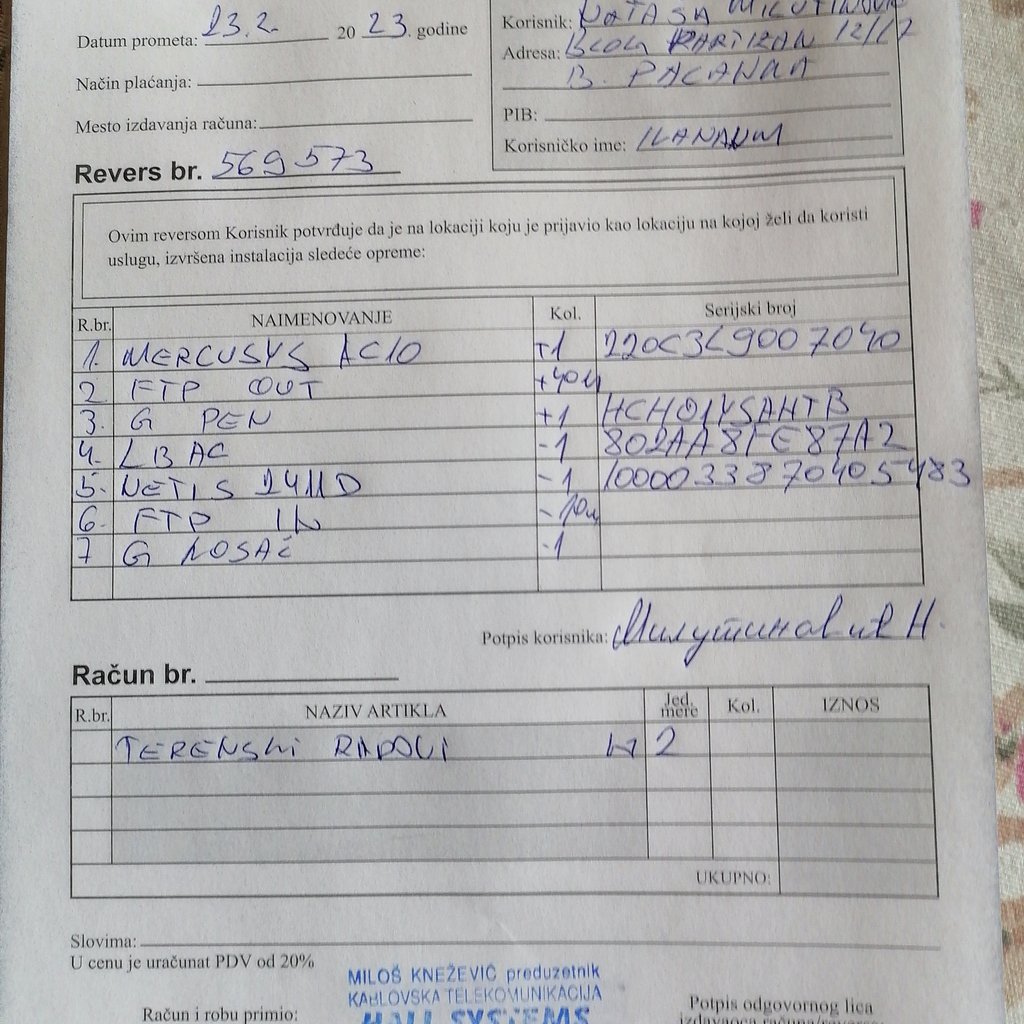 Datum prometa: 23.2. 20 23. godine
Način plaćanja:
Mesto izdavanja računa:
Korisnik: NATASA MILUTINOVIC
Adresa: BLOG PARTIZAN 12/17
B. PALANKA
PIB:
Korisničko ime: ILANANM
Revers br. 569573
Ovim reversom Korisnik potvrđuje da je na lokaciji koju je prijavio kao lokaciju na kojoj želi da koristi
uslugu, izvršena instalacija sledeće opreme:
R.br. NAIMENOVANJE Kol. Serijski broj
1. MERCUSYS AC10 +1 220C3L9007040
2 FTP OUT +40m
3. G PEN +1 HCHO1YSAHTB
4. LB AC -1 802AA8FE87A2
5. NETIS 2411D -1 1000033870405483
6. FTP IN -10m
7 G NOSAČ -1
Potpis korisnika: Милутиновић Н.
Račun br.
R.br. NAZIV ARTIKLA Jed. mere Kol. IZNOS
TERENSKI RADOVI H 2
UKUPNO:
Slovima:
U cenu je uračunat PDV od 20%
MILOŠ KNEŽEVIĆ preduzetnik
KABLOVSKA TELEKOMUNIKACIJA
HALL SYSTEMS
Račun i robu primio:
Potpis odgovornog lica
izdavaoca računa/reversa